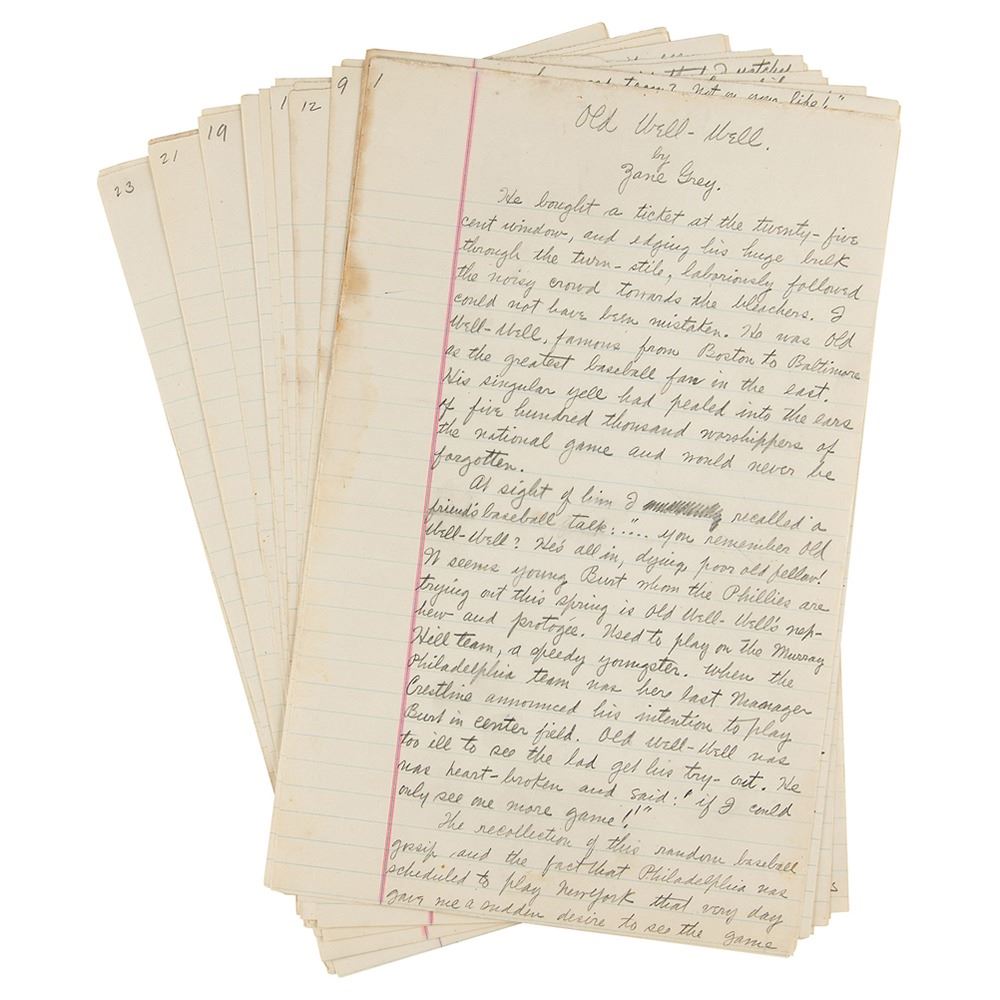 23
21
19
1
12
9
1
watched
team? Not on your like!"
Old Well-Well.
by
Zane Grey.
He bought a ticket at the twenty-five
cent window, and edging his huge bulk
through the turn-stile, laboriously followed
the noisy crowd towards the bleachers. I
could not have been mistaken. He was Old
Well-Well, famous from Boston to Baltimore
as the greatest baseball fan in the east.
His singular yell had pealed into the ears
of five hundred thousand worshippers of
the national game and would never be
forgotten.
At sight of him I recalled a
friend's baseball talk: ".... you remember Old
Well-Well? He's all in, dying, poor old fellow!
It seems young Burt whom the Phillies are
trying out this spring is Old Well-Well's nep-
hew and protogée. Used to play on the Murray
Hill team, a speedy youngster. When the
Philadelphia team was here last Manager
Crestline announced his intention to play
Burt in center field. Old Well-Well was
too ill to see the lad get his try-out. He
was heart-broken and said: 'if I could
only see one more game!'"
The recollection of this random baseball
gossip and the fact that Philadelphia was
scheduled to play New York that very day
gave me a sudden desire to see the game